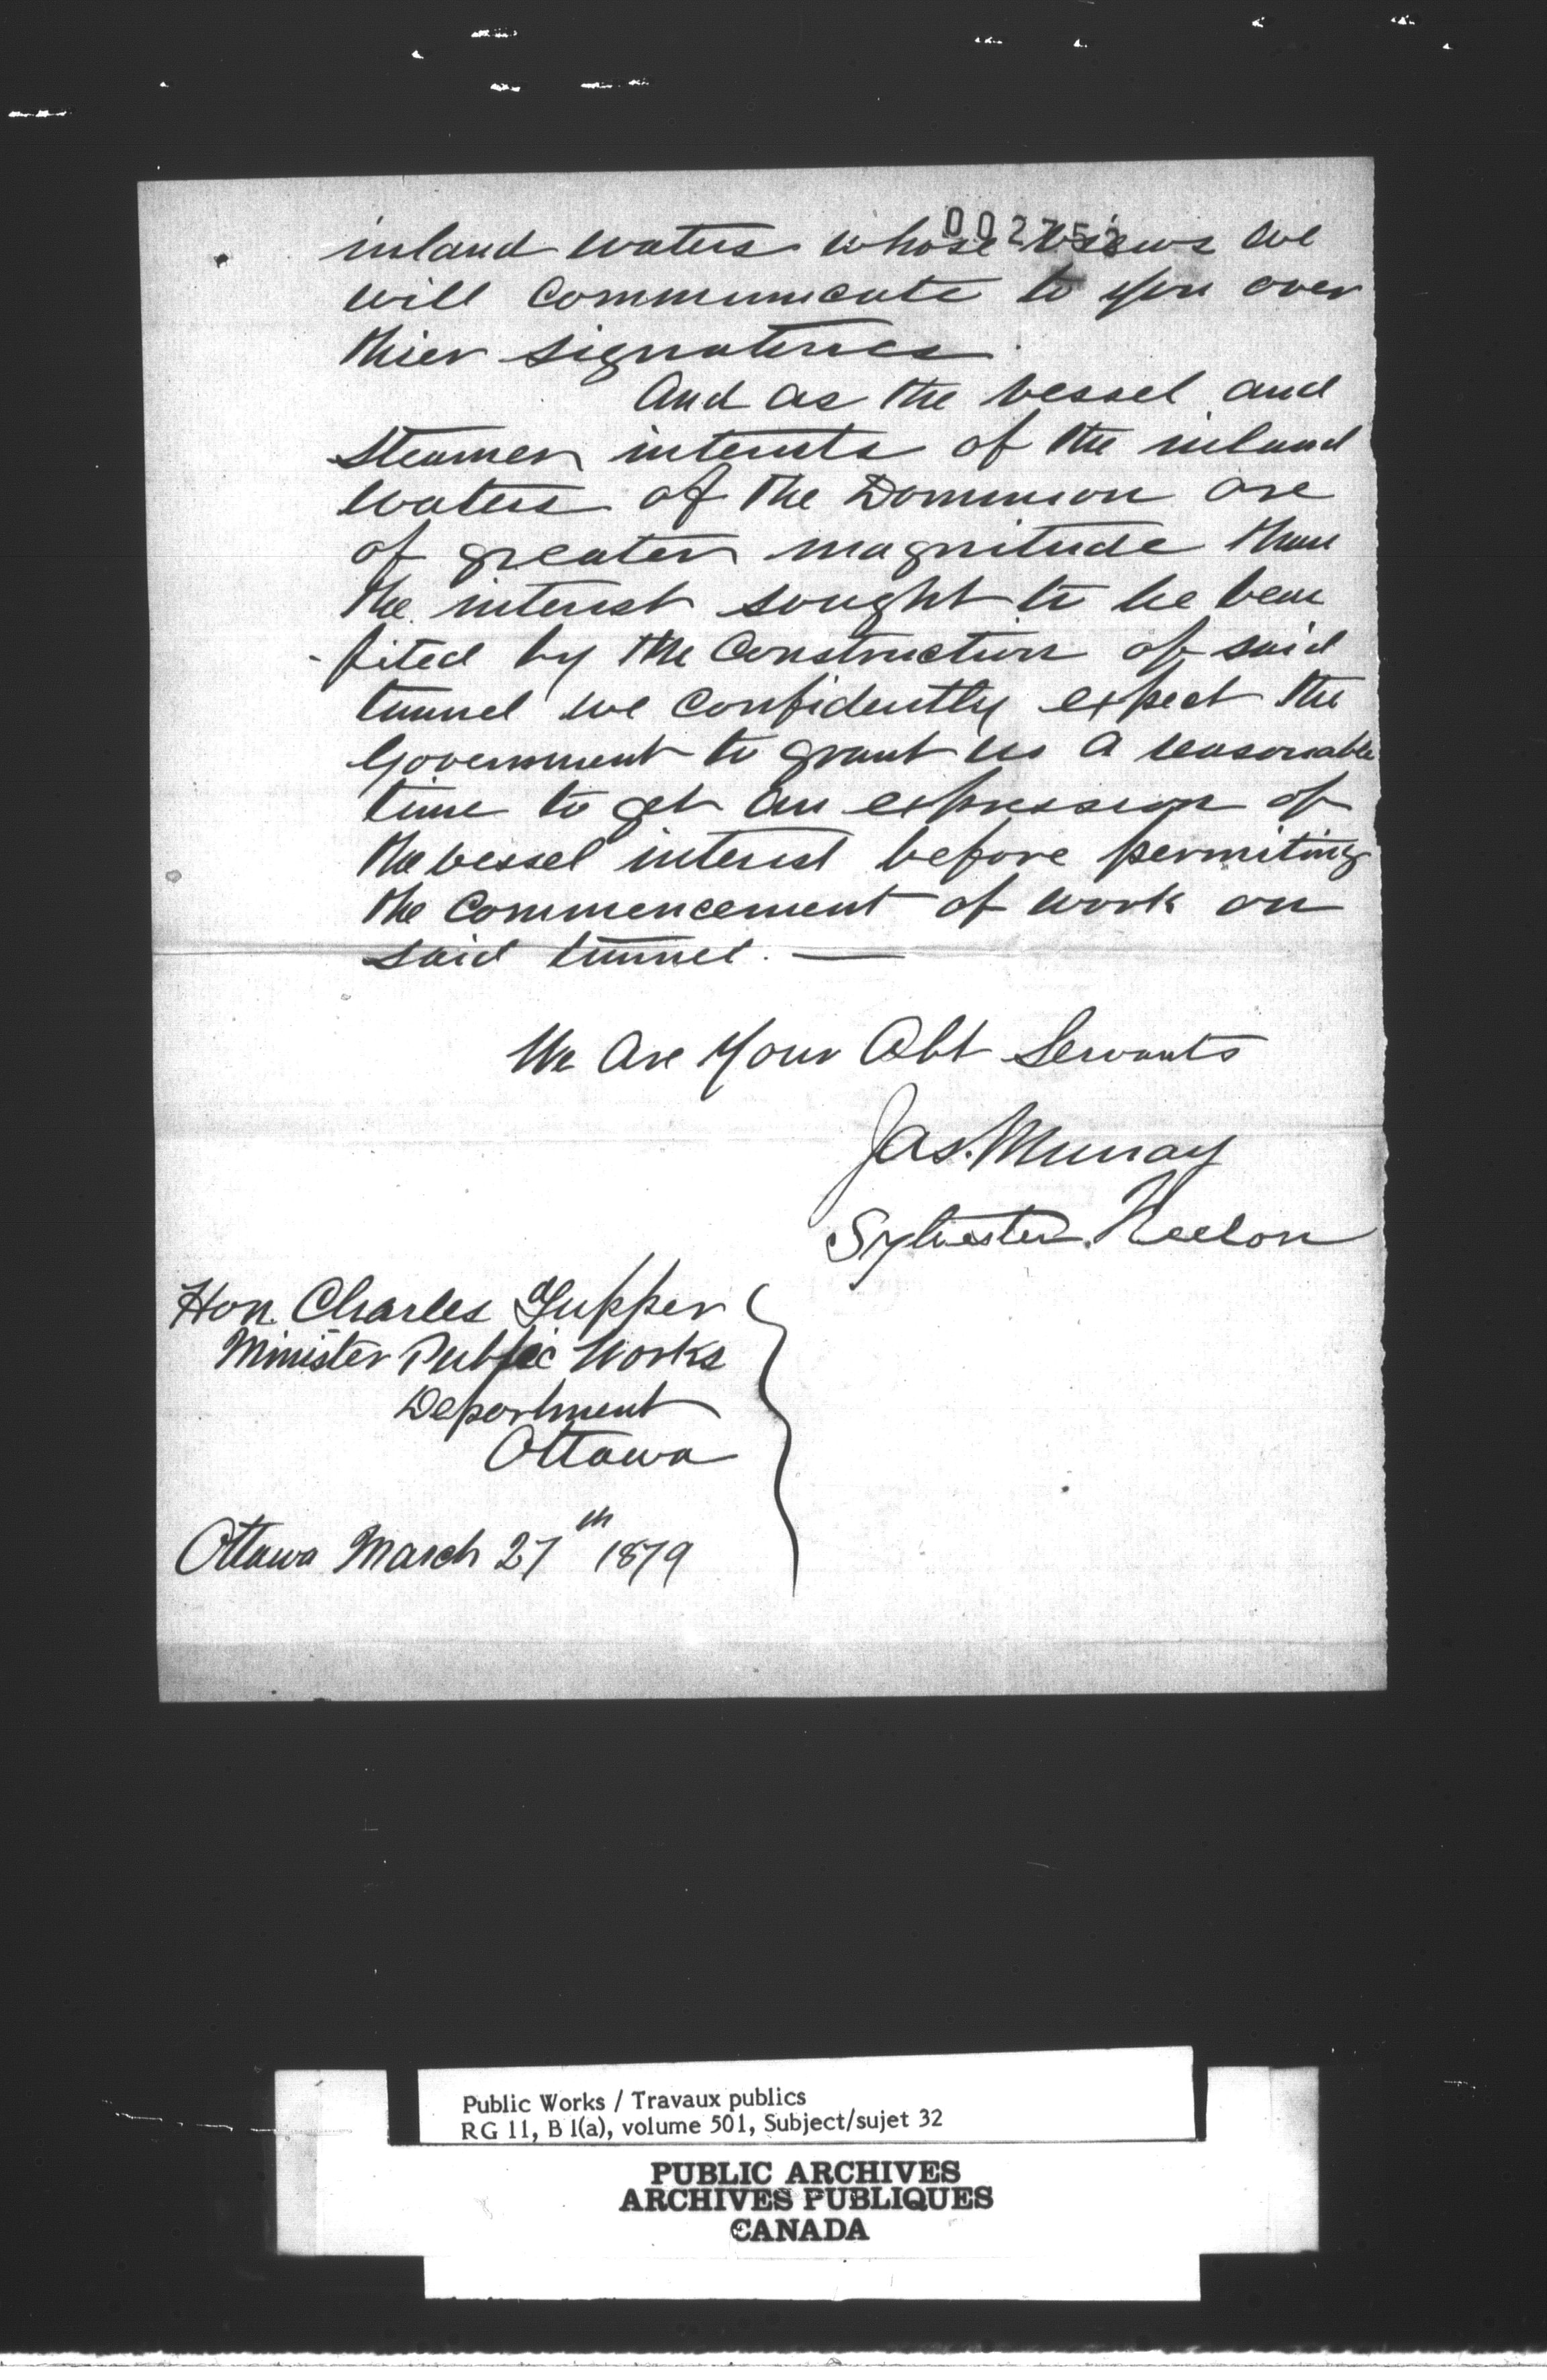 002752
inland waters whose views we
will communicate to you over
thier signatures.
And as the vessel and
steamer interests of the inland
waters of the Dominion are
of greater magnitude than
the interest sought to be bene
-fited by the Construction of said
tunnel we confidently expect the
Government to grant us a reasonable
time to get an expression of
the vessel interest before permiting
the commencement of work on
said tunnel. —
We Are Your Obt Servants
Jas. Murray
Sylvester Neelon
Hon. Charles Tupper
Minister Public Works
Department
Ottawa
Ottawa March 27th 1879
Public Works / Travaux publics
RG 11, B 1(a), volume 501, Subject/sujet 32
PUBLIC ARCHIVES
ARCHIVES PUBLIQUES
CANADA